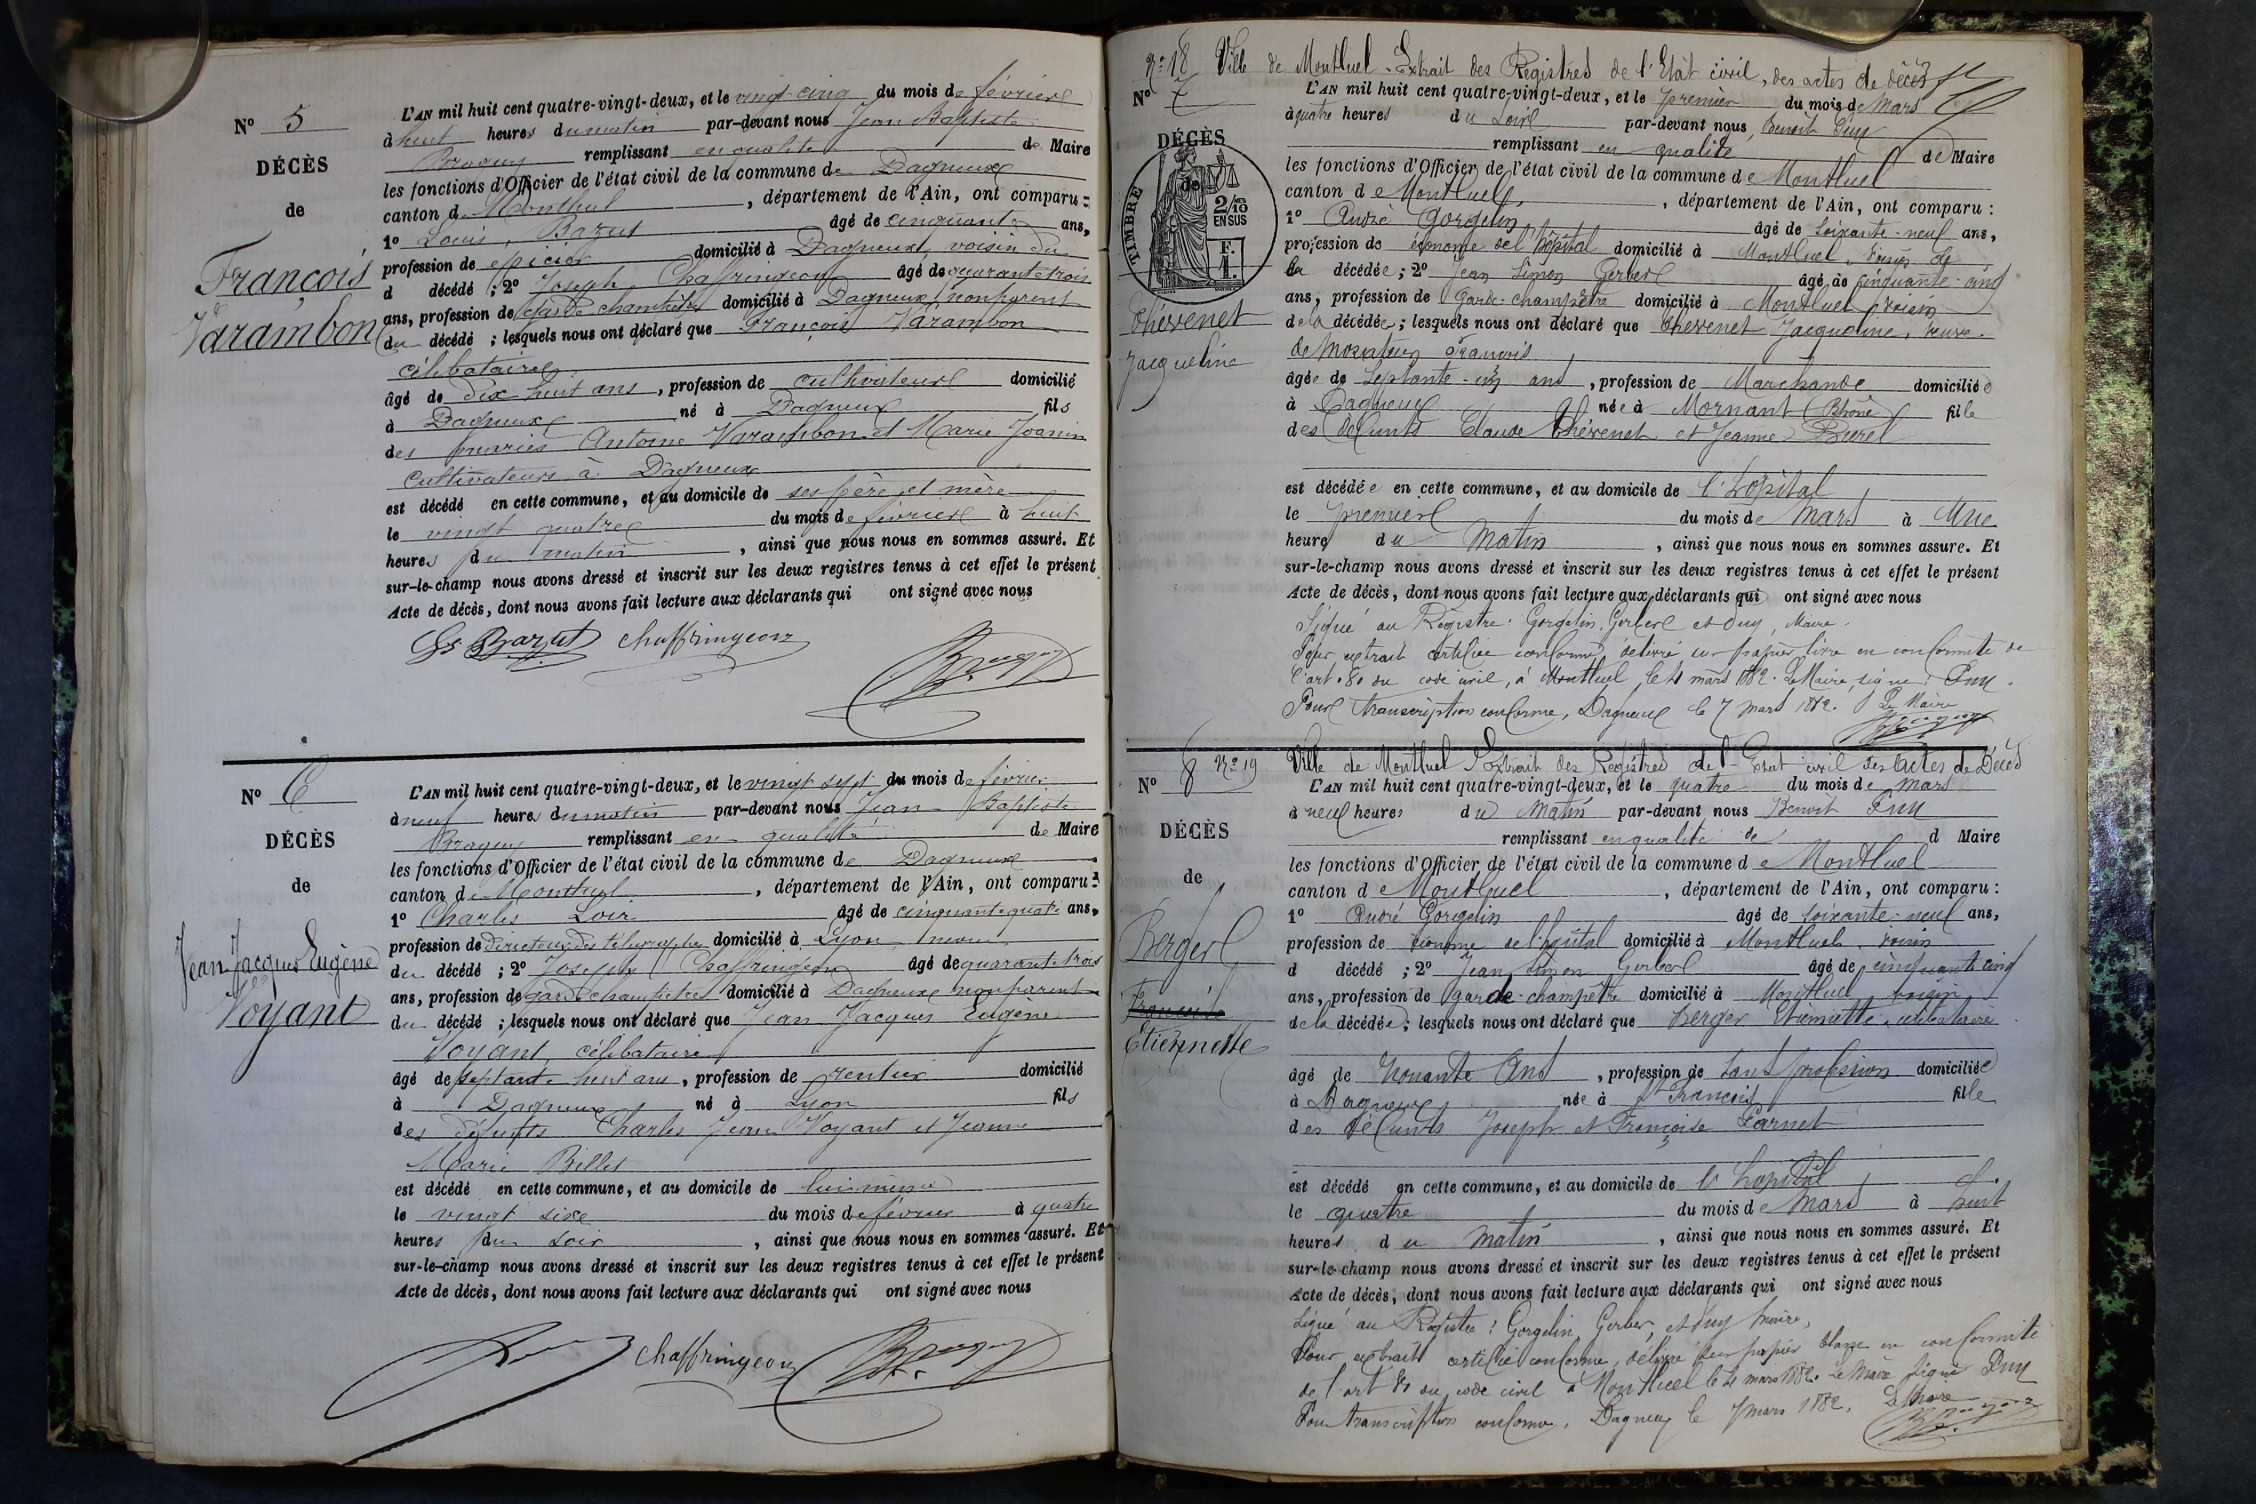 N° 5
DÉCÈS
de
François
Varambon
L'AN mil huit cent quatre-vingt-deux, et le vingt-cinq du mois de février
à huit heures du matin par-devant nous Jean Baptiste
remplissant en qualité de Maire
les fonctions d'Officier de l'état civil de la commune de Dagneux
canton de Montluel, département de l'Ain, ont comparu :
1° Louis Bazut âgé de cinquante ans,
profession de épicier domicilié à Dagneux, voisin du
d décédé ; 2° Joseph Chaffringeon âgé de quarante trois
ans, profession de garde champêtre domicilié à Dagneux, non parent
du décédé ; lesquels nous ont déclaré que François Varambon
célibataire
âgé de dix huit ans, profession de cultivateur domicilié
à Dagneux né à Dagneux fils
des mariés Antoine Varambon et Marie Joannin
cultivateurs à Dagneux
est décédé en cette commune, et au domicile de ses père et mère
le vingt quatre du mois de février à huit
heures du matin, ainsi que nous nous en sommes assuré. Et
sur-le-champ nous avons dressé et inscrit sur les deux registres tenus à cet effet le présent
Acte de décès, dont nous avons fait lecture aux déclarants qui ont signé avec nous
Bazut Chaffringeon
N° 6
DÉCÈS
de
Jean Jacques Eugène
Voyant
L'AN mil huit cent quatre-vingt-deux, et le vingt sept du mois de février
à neuf heures du matin par-devant nous Jean Baptiste
remplissant en qualité de Maire
les fonctions d'Officier de l'état civil de la commune de Dagneux
canton de Montluel, département de l'Ain, ont comparu :
1° Charles Loir âgé de cinquante quatre ans,
profession de Directeur des télégraphes domicilié à Lyon, neveu
du décédé ; 2° Joseph Chaffringeon âgé de quarante trois
ans, profession de garde champêtre domicilié à Dagneux non parent
du décédé ; lesquels nous ont déclaré que Jean Jacques Eugène
Voyant, célibataire
âgé de septante huit ans, profession de rentier domicilié
à Dagneux né à Lyon fils
des défunts Charles Jean Voyant et Jeanne
Marie Billet
est décédé en cette commune, et au domicile de lui-même
le vingt six du mois de février à quatre
heures du soir, ainsi que nous nous en sommes assuré. Et
sur-le-champ nous avons dressé et inscrit sur les deux registres tenus à cet effet le présent
Acte de décès, dont nous avons fait lecture aux déclarants qui ont signé avec nous
Chaffringeon
N° 18 Ville de Montluel Extrait des Registres de l'Etat civil, des actes de décès
N° 7
DÉCÈS
de
TIMBRE
2/10
EN SUS
F.
1.
Thévenet
Jacqueline
L'AN mil huit cent quatre-vingt-deux, et le premier du mois de Mars
à quatre heures du Soir par-devant nous Benoit Puy
remplissant en qualité de Maire
les fonctions d'Officier de l'état civil de la commune de Montluel
canton de Montluel, département de l'Ain, ont comparu :
1° André Gorgelin âgé de soixante-neuf ans,
profession de économe de l'hôpital domicilié à Montluel, voisin de
la décédée ; 2° Jean Simon Gerber âgé de cinquante-cinq
ans, profession de Garde-champêtre domicilié à Montluel voisin
de la décédée ; lesquels nous ont déclaré que Thévenet Jacqueline, veuve
de François
âgée de septante ans, profession de Marchande domiciliée
à Dagneux née à Mornant (Rhône) fille
des défunts Claude Thévenet et Jeanne Burel
est décédée en cette commune, et au domicile de l'hôpital
le premier du mois de Mars à Une
heure du Matin, ainsi que nous nous en sommes assuré. Et
sur-le-champ nous avons dressé et inscrit sur les deux registres tenus à cet effet le présent
Acte de décès, dont nous avons fait lecture aux déclarants qui ont signé avec nous
Signé au Registre : Gorgelin, Gerber et Puy, Maire.
Pour extrait certifié conforme, délivré sur papier libre en conformité de
l'art. 80 du code civil, à Montluel, le 4 mars 1882. Le Maire, signé : Puy.
Pour transcription conforme, Dagneux le 7 mars 1882. Le Maire
N° 19 Ville de Montluel Extrait des Registres de l'Etat civil des actes de Décès
N° 8
DÉCÈS
de
Berger
Etiennette
L'AN mil huit cent quatre-vingt-deux, et le quatre du mois de mars
à neuf heures du Matin par-devant nous Benoit Puy
remplissant en qualité de d Maire
les fonctions d'Officier de l'état civil de la commune de Montluel
canton de Montluel, département de l'Ain, ont comparu :
1° André Gorgelin âgé de soixante-neuf ans,
profession de économe de l'hôpital domicilié à Montluel, voisin
d décédé ; 2° Jean Simon Gerber âgé de cinquante cinq
ans, profession de garde-champêtre domicilié à Montluel voisin
de la décédée ; lesquels nous ont déclaré que Berger Etiennette, célibataire
âgé de Nonante Ans, profession de sans profession domiciliée
à Dagneux née à St François fille
des défunts Joseph et Françoise Carnet
est décédé en cette commune, et au domicile de l'hôpital
le quatre du mois de Mars à huit
heures du Matin, ainsi que nous nous en sommes assuré. Et
sur-le-champ nous avons dressé et inscrit sur les deux registres tenus à cet effet le présent
Acte de décès, dont nous avons fait lecture aux déclarants qui ont signé avec nous
Signé au Registre : Gorgelin, Gerber, et Puy Maire,
Pour extrait certifié conforme, délivré sur papier libre en conformité
de l'art 80 du code civil à Montluel le 4 mars 1882. Le Maire signé Puy
Pour transcription conforme, Dagneux le 7 mars 1882. Le Maire